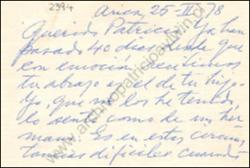 2394
Arica 25-III-78
Querido Patricio: Ya han
pasado 40 días desde que
con emoción recibimos
tu abrazo y el de tu hi-
jo, que no los he tenido,
lo siento como de un her
mano. Es en estas circuns
tancias difíciles cuando